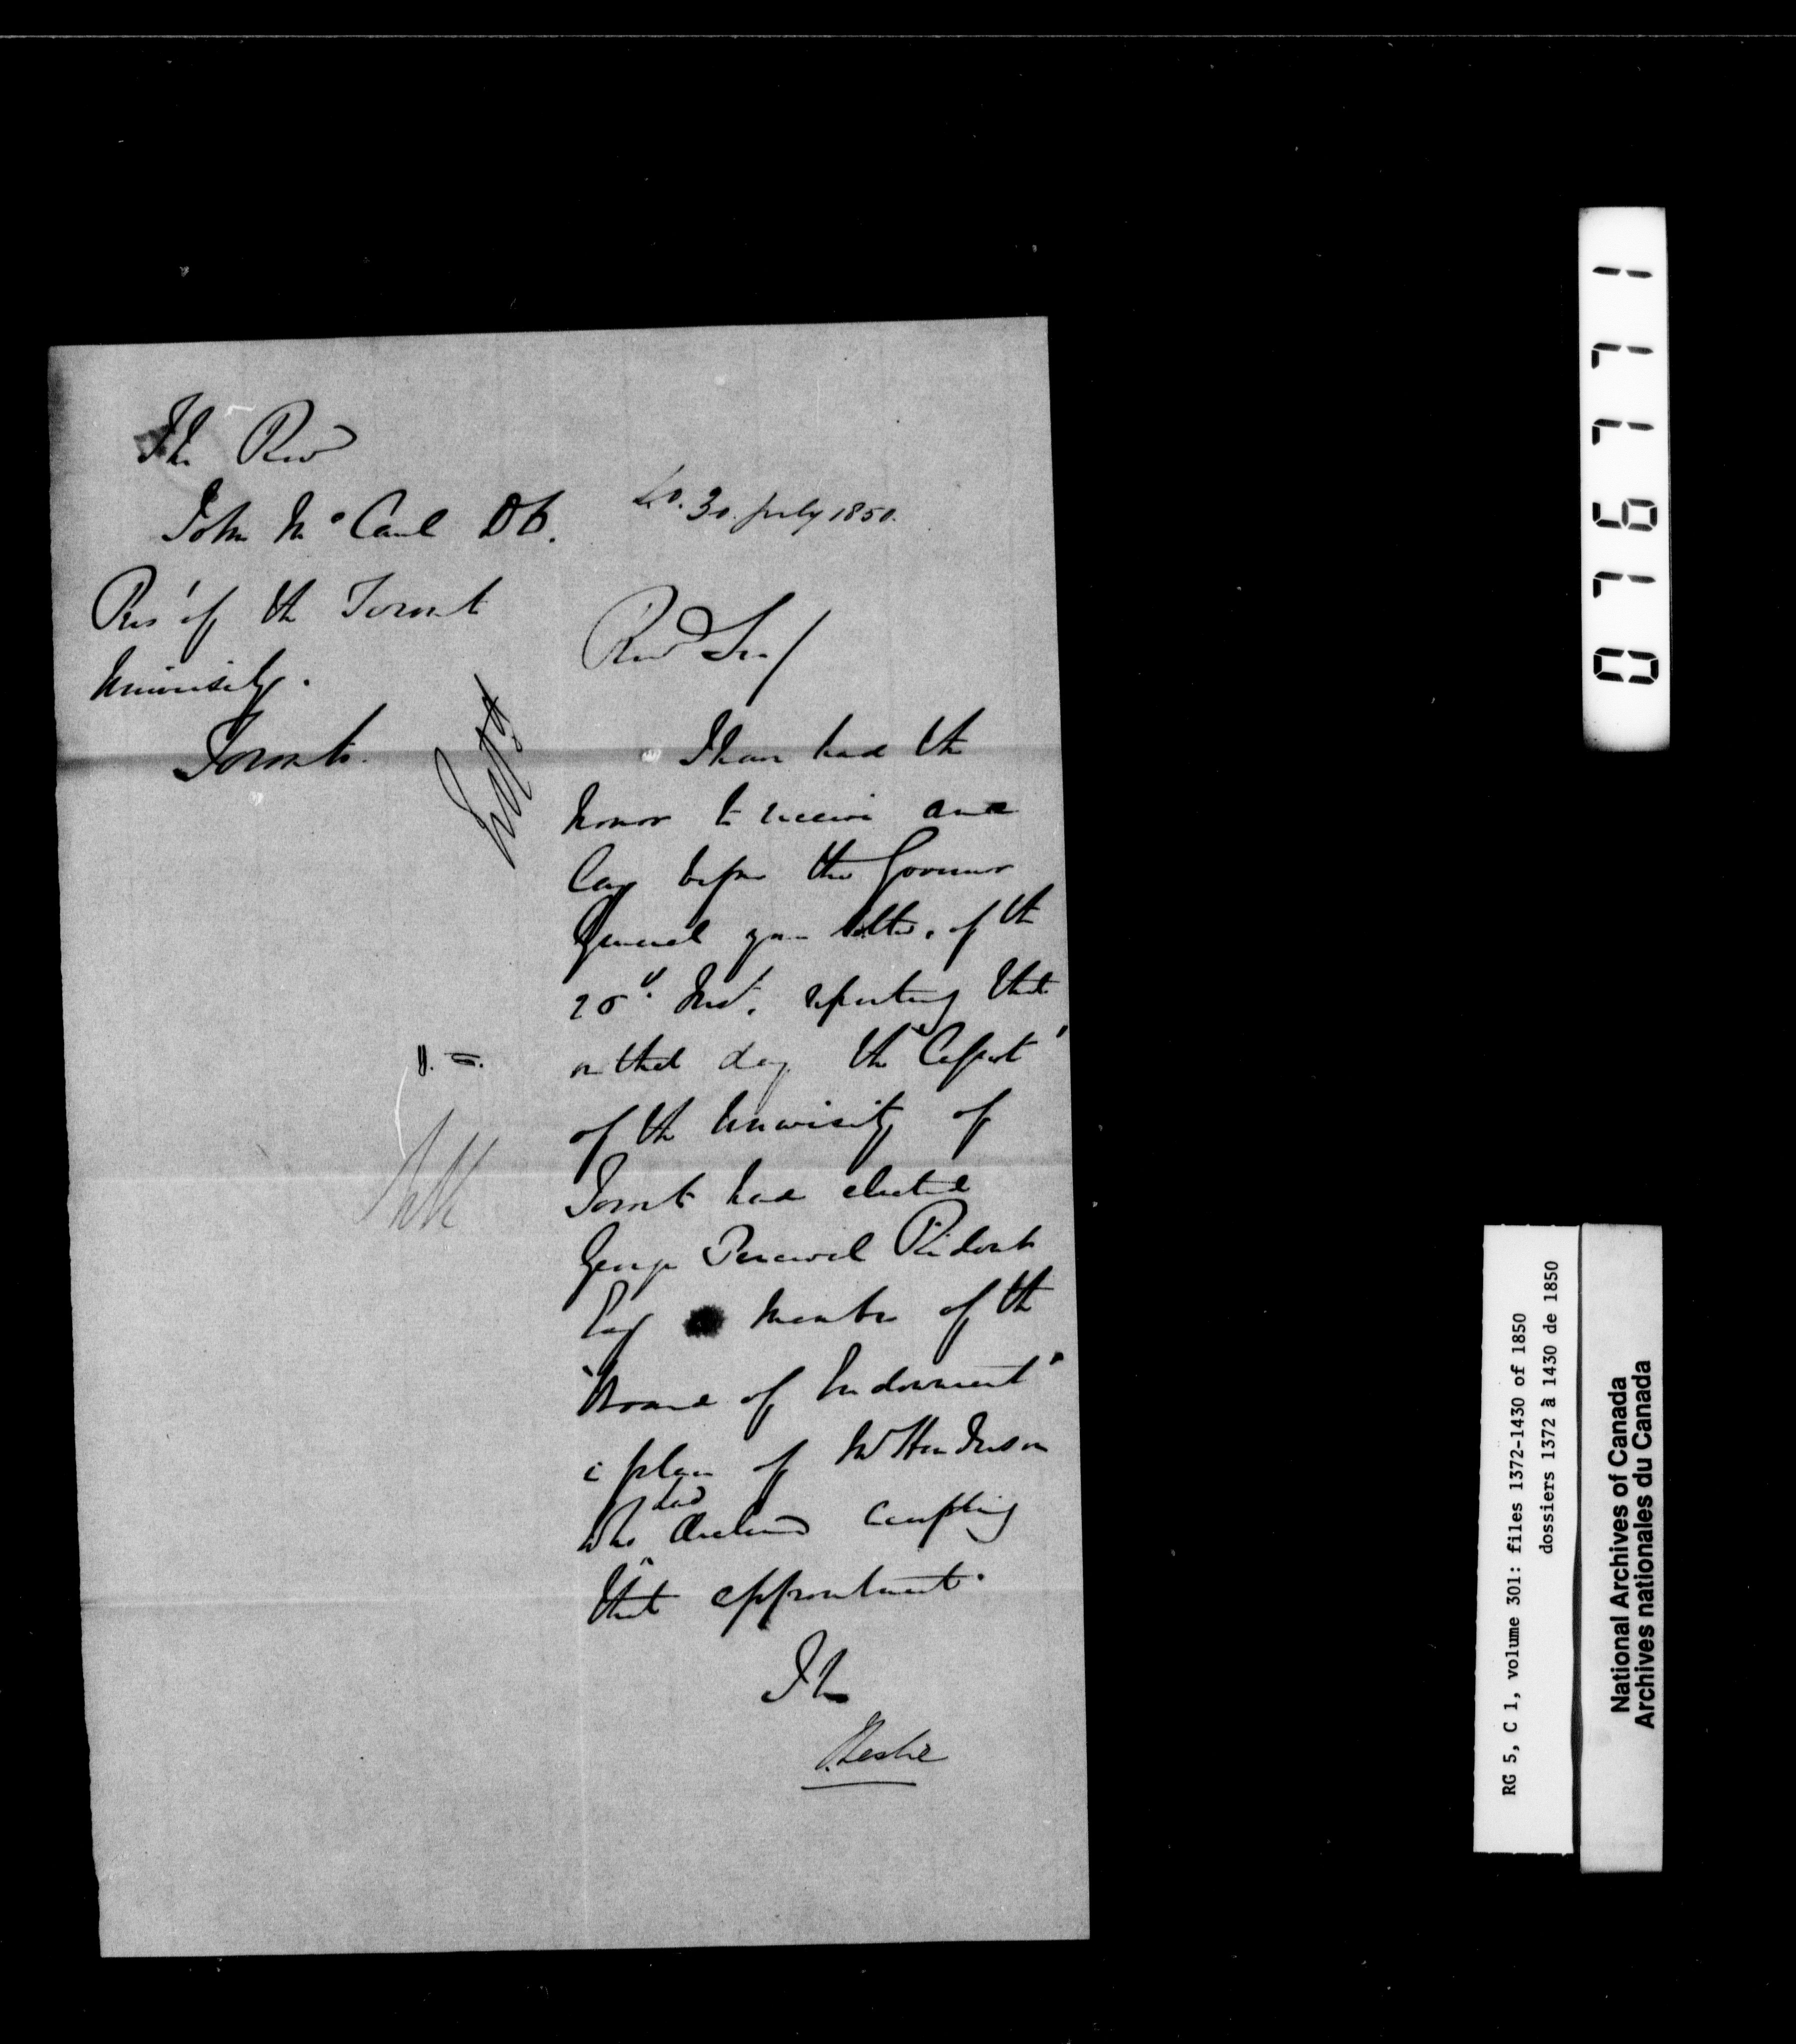 The Revd
John McCaul DD.
Pres't of the Toronto
University.
Toronto.
30 July 1850.
Revd Sir/
I have had the
honor to receive and
lay before the Governor
General your letter of the
Inst. reporting that
on that day the "Caput"
of the University of
Toronto had elected
George Percival Ridout
Esq Member of the
"Board of Endowment"
i place of Mr Henderson
who had declined accepting
that appointment.
I h
J. Leslie
076771
RG 5, C 1, volume 301: files 1372-1430 of 1850
dossiers 1372 à 1430 de 1850
National Archives of Canada
Archives nationales du Canada